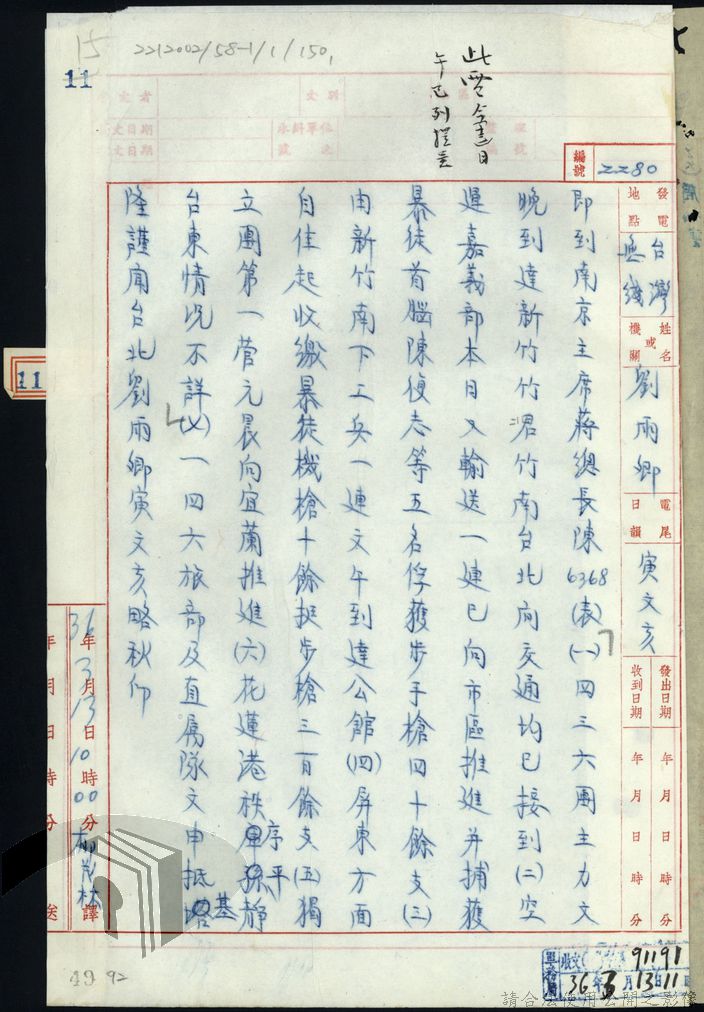 15
11
2212002/58-1/1/150,
此電今晨日
午已列提要
編號
2280
發電地點
台灣無綫
姓名或機關
劉雨卿
電尾日韻
寅文亥
發出日期 年 月 日 時 分
收到日期 年 月 日 時 分
即到南京主席蔣總長陳6368(表)(一)四三六團主力文
晚到達新竹竹君竹南台北向交通均已接到(二)空
運嘉義部本日又輸送一連已向市區推進并捕獲
暴徒首腦陳復志等五名俘獲步手槍四十餘支(三)
由新竹南下工兵一連文午到達公館(四)屏東方面
自佳起收繳暴徒機槍十餘挺步槍三百餘支(五)獨
立團第一營元晨向宜蘭推進(六)花蓮港秩序平靜
台東情況不詳(七)一四六旅部及直屬隊文申抵基
隆謹聞台北劉雨卿寅文亥略秋仰
36年3月13日10時00分 譯
年 月 日 時 分 送
11
收文
9191
36年3月13日11
49 92
請合法使用公開之影像